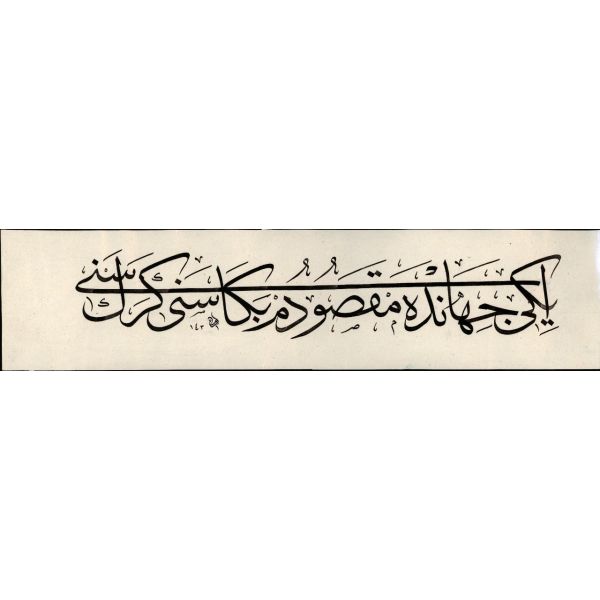 ایکی جهانده مقصودم بکا سنی کرک سنی